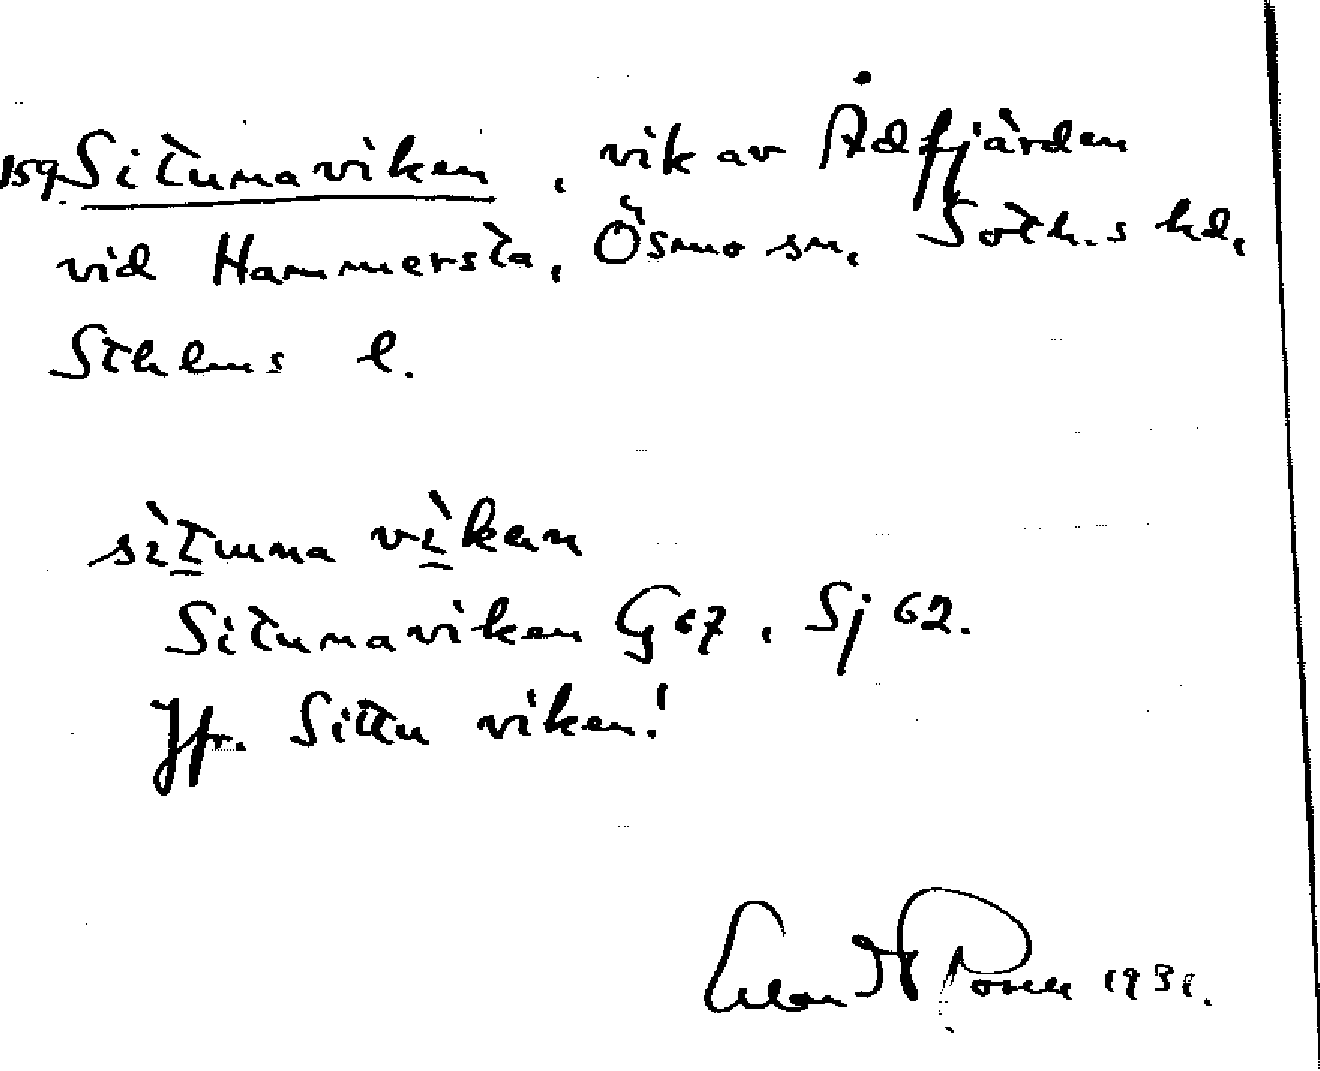 159. Situnaviken, vik av Ådfjärden
vid Hammersta, Ösmo sn, Soth.s hd,
Sthlms l.
sìtunna vìkan
Situnaviken G 67, Sj 62.
Jfr. Sittuviken!
1931.